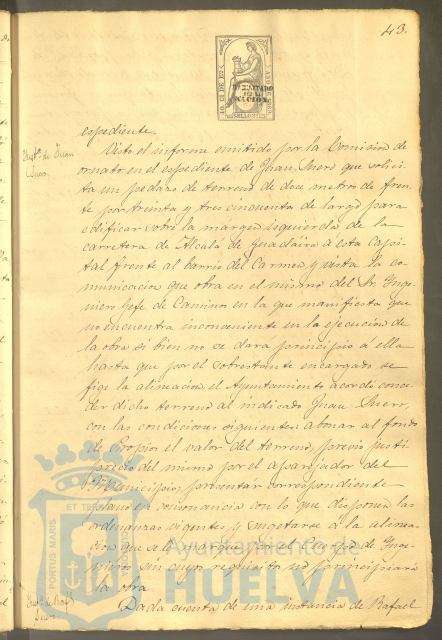 43.
AÑO DE 1869
HABILITADO
POR LA
NACION
SELLO
espediente.
Visto el informe emitido por la Comision de
ornato en el espediente de Juan Suero que solici-
ta un pedazo de terreno de doce metros de fren-
te por treinta y tres cincuenta de largo para
edificar sobre la margen izquierda de la
carretera de Alcalá de Guadaira a esta Capi-
tal frente al barrio del Carmen y vista la co-
municacion que obra en el mismo del Sr. Inge-
niero Gefe de Caminos en la que manifiesta que
no encuentra inconveniente en la ejecucion de
la obra si bien no se dara principio á ella
hasta que por el sobrestante encargado se
fige la alineacion el Ayuntamiento acordó conce-
der dicho terreno al indicado Juan Suero,
con las condiciones siguientes: abonar al fondo
de Propios el valor del terreno, previo justi-
precio del mismo por el aparejador del
Municipio, presentar correspondiente
plano en consonancia con lo que disponen las
ordenanzas vigentes y sugetarse á la alinea-
cion que se le marque por el Cuerpo de Inge-
nieros sin cuyo requisito no principiará
la obra
Dada cuenta de una instancia de Rafael
de Juan
Suero.
Suero
PORTUS MARIS ET TERRAE
Ayuntamiento de
HUELVA